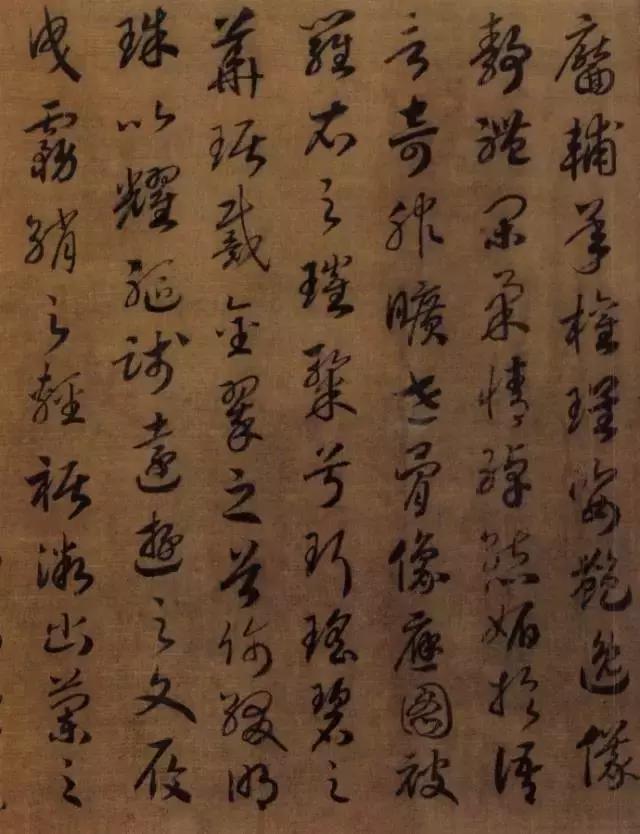 靨輔承權瑰姿艷逸儀
靜體閑柔情綽態媚於語
言奇服曠世骨像應圖被
羅衣之璀粲兮珥瑤碧之
華琚戴金翠之首飾綴明
珠以耀軀踐遠遊之文履
曳霧綃之輕裾微幽蘭之